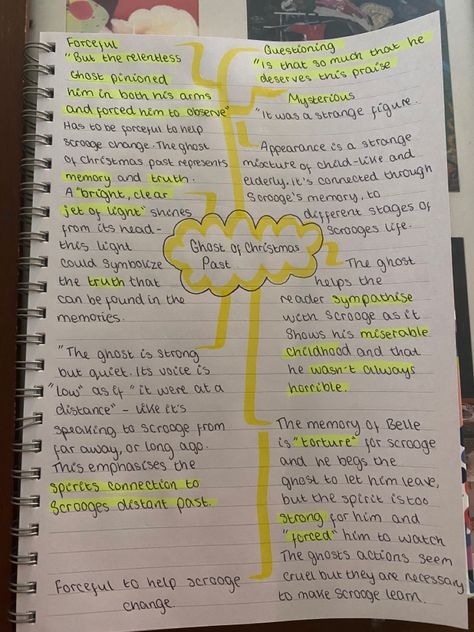 Forceful
"But the relentless
Ghost pinioned
him in both his arms
and forced him to observe"
Has to be forceful to help
scrooge change. The ghost
of christmas past represents
memory and truth.
A "bright, clear
jet of light" shines
from its head -
this light
could symbolize
the truth that
can be found in the
memories.
"The ghost is strong
but quiet. Its voice is
"low" as if "it were at a
distance" - like it's
speaking to scrooge from
far away, or long ago.
This emphasises the
spirits connection to
Scrooges distant past.
Forceful to help scrooge
change.
Ghost of Christmas
Past
Questioning
"Is that so much that he
deserves this praise
Mysterious
"It was a strange figure.
Appearance is a strange
mixture of child-like and
elderly. it's connected through
Scrooge's memory, to
different stages of
Scrooges life.
The ghost
helps the
reader sympathise
with Scrooge as it
Shows his miserable
childhood and that
he wasn't always
horrible.
The memory of Belle
is "torture" for scrooge
and he begs the
ghost to let him leave,
but the spirit is too
strong for him and
"forced" him to watch
The ghosts actions seem
cruel but they are necessary
to make Scrooge learn.